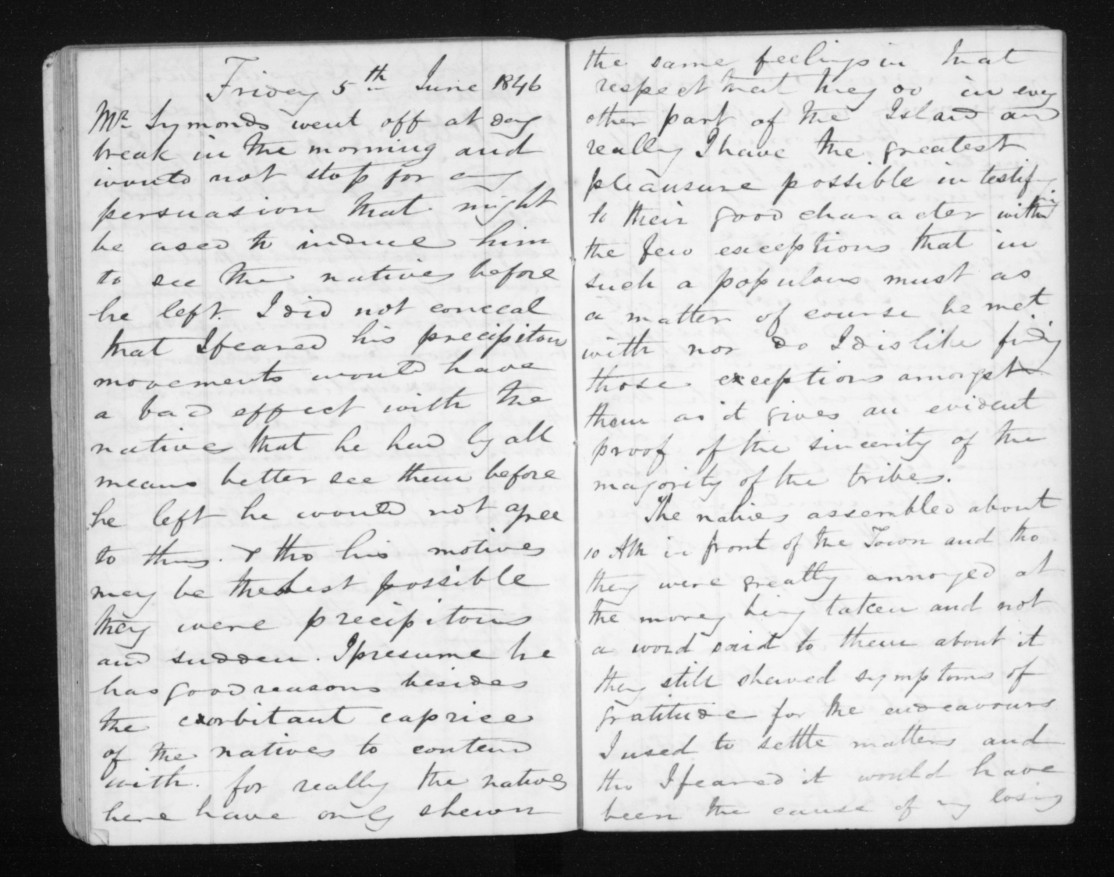 Friday 5th June 1846
Mr Symonds went off at day
break in the morning and
would not stop for any
persuasion that might
be used to induce him
to see the natives before
he left. I did not conceal
that I feared his precipitous
movements would have
a bad effect with the
natives that he had by all
means better see them before
he left he would not agree
to this. & tho his motives
may be the best possible
they were precipitous
and sudden. I presume he
has good reasons besides
the exorbitant caprice
of the natives to contend
with. for really the natives
here have only shewn
the same feelings in that
respect that they do in evey
other part of the Island and
really I have the greatest
pleausure possible in testifying
to their good character with
the few exceptions that in
such a populous must as
a matter of course be met
with nor do I dislike findg
those exceptions amongst
them as it gives an evident
proof of the sincerity of the
majority of the tribes.
The natives assembled about
10 AM in front of the Town and tho
they were greatly annoyed at
the money being taken and not
a word said to them about it
they still shewed symptoms of
gratitude for the endeavours
I used to settle matters and
tho I feared it would have
been the cause of my losing